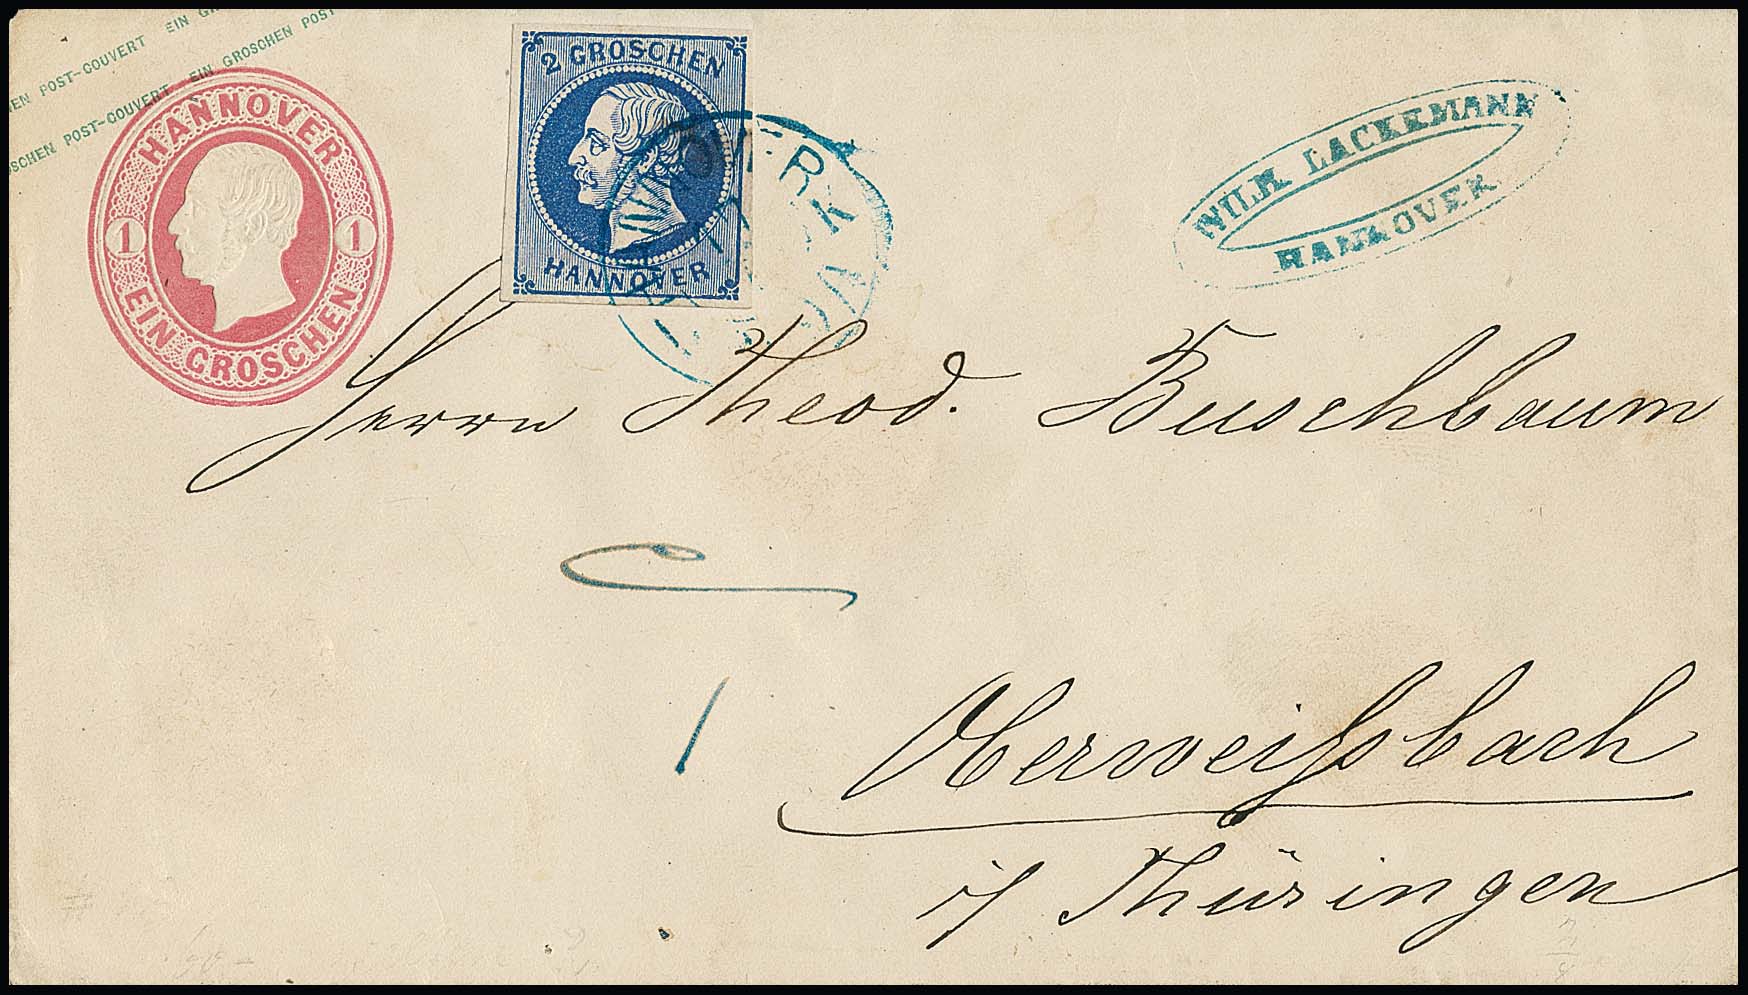 EIN GR
POST-COUVERT EIN GROSCHEN POST
SCHEN POST-COUVERT
HANNOVER
1 1
EIN GROSCHEN
2 GROSCHEN
HANNOVER
WILH LACKEMANN
HANNOVER
Herrn Theod. Buschbaum
1
Oberweißbach
i/ Thüringen